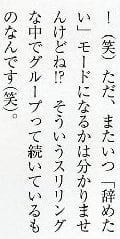 ！（笑）ただ、またいつ「辞めた
い」モードになるかは分かりませ
んけどね!?　そういうスリリング
な中でグループって続いているも
のなんです（笑）。